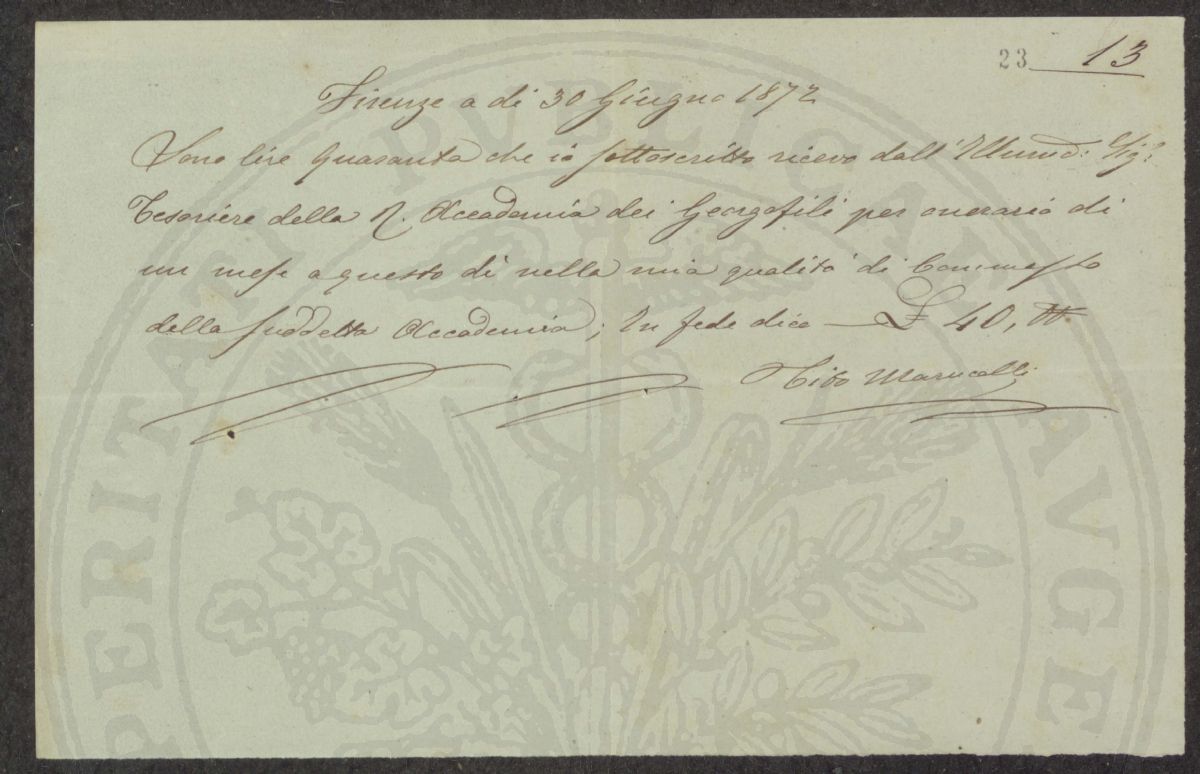 23 13
Firenze a di 30 Giugno 1872
Sono lire quaranta che io sottoscritto ricevo dall' Illmo Sig.r
Tesoriere della R. Accademia dei Georgofili per onorario di
un mese a questo dì nella mia qualità di Commesso
della suddetta Accademia; In fede dico — £ 40, "
Tito Marucelli
PROSPERITATI PVBLICAE AVGE